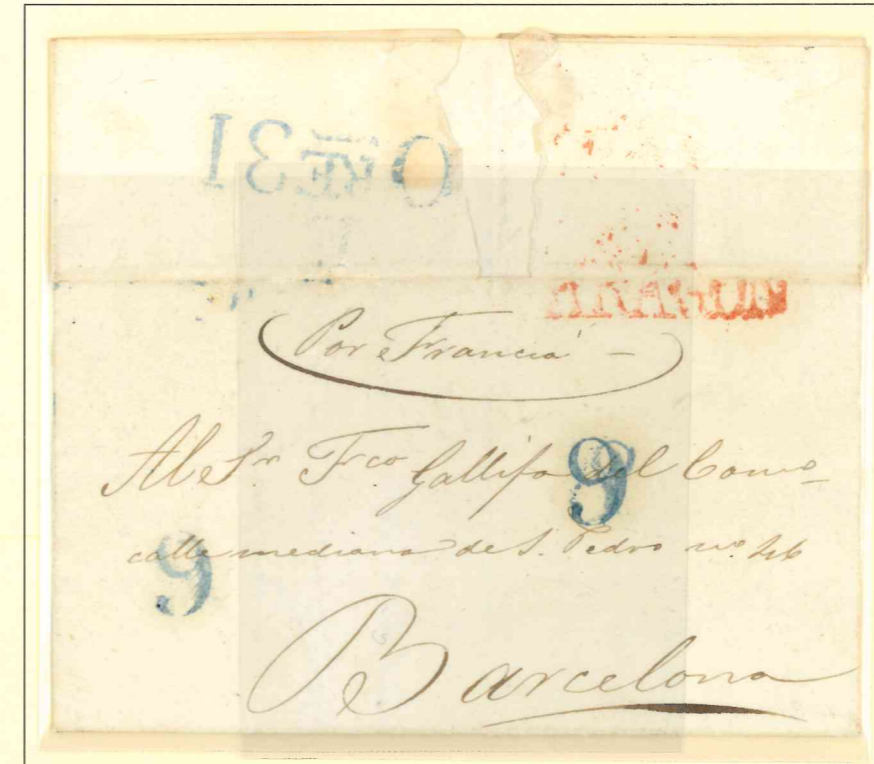 ARAGON
Por Francia
Al Sr. Frco Gallifa del Como
calle mediana de S. Pedro no. 46
9
9
Barcelona